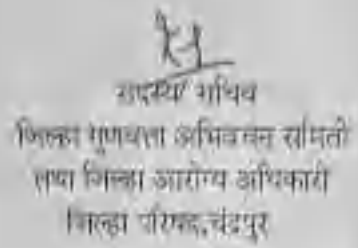 सदस्य सचिव
जिल्हा गुणवत्ता अभिवचन समिती
तथा जिल्हा आरोग्य अधिकारी
जिल्हा परिषद,चंद्रपुर